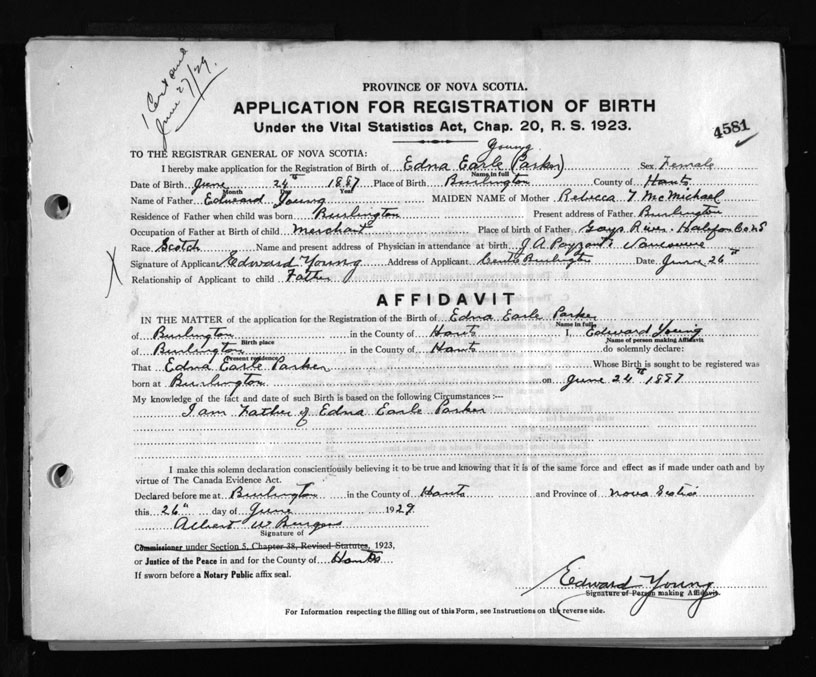 1 Cert
June 27/29.
PROVINCE OF NOVA SCOTIA.
APPLICATION FOR REGISTRATION OF BIRTH
Under the Vital Statistics Act, Chap. 20, R. S. 1923.
4581
TO THE REGISTRAR GENERAL OF NOVA SCOTIA:
Young
I hereby make application for the Registration of Birth of Edna Earle (Parker) Sex Female
Name in full
Date of Birth June 24th 1887 Place of Birth Burlington County of Hants
Month Day Year
Name of Father Edward Young MAIDEN NAME of Mother Rebecca McMichael
Residence of Father when child was born Burlington Present address of Father Burlington
Occupation of Father at Birth of child Merchant Place of birth of Father Gays River Halifax Co NS
Race Scotch Name and present address of Physician in attendance at birth J A Payzant
X Signature of Applicant Edward Young Address of Applicant Burlington Date June 26th
Relationship of Applicant to child Father
AFFIDAVIT
IN THE MATTER of the application for the Registration of the Birth of Edna Earle Parker
Name in full
of Burlington in the County of Hants I, Edward Young
Birth place Name of person making Affidavit
of Burlington in the County of Hants do solemnly declare:
Present residence
That Edna Earle Parker Whose Birth is sought to be registered was
born at Burlington on June 24th 1887
My knowledge of the fact and date of such Birth is based on the following Circumstances :---
I am Father of Edna Earle Parker
I make this solemn declaration conscientiously believing it to be true and knowing that it is of the same force and effect as if made under oath and by
virtue of The Canada Evidence Act.
Declared before me at Burlington in the County of Hants and Province of Nova Scotia
this 26th day of June 1929
Albert W Burgess
Signature of
Commissioner under Section 5, Chapter 38, Revised Statutes, 1923,
or Justice of the Peace in and for the County of Hants
If sworn before a Notary Public affix seal.
Edward Young
Signature of Person making Affidavit.
For Information respecting the filling out of this Form, see Instructions on the reverse side.